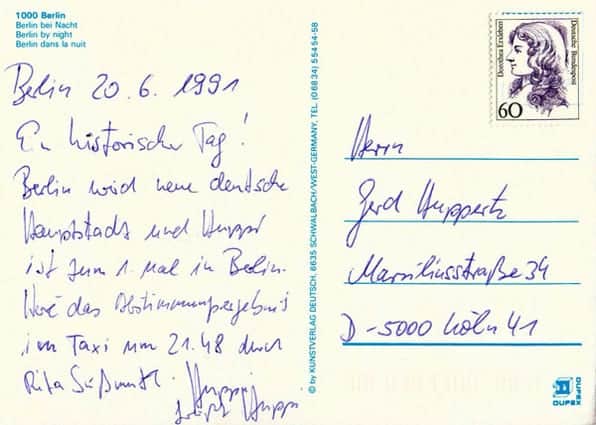 1000 Berlin
Berlin bei Nacht
Berlin by night
Berlin dans la nuit
Berlin 20.6.1991
Ein historischer Tag!
Berlin wird neue deutsche
Hauptstadt und Huppi
ist zum 1. mal in Berlin.
Höre das Abstimmungsergebnis
im Taxi um 21.48 durch
Rita Süßmuth. Huppi
Huppi
© by KUNSTVERLAG DEUTSCH, 6635 SCHWALBACH/WEST-GERMANY, TEL. (06834) 55454-58
Dorothea Erxleben
Deutsche Bundespost
60
Herrn
Gerd Huppertz
Marsiliusstraße 34
D-5000 Köln 41
DUPEX
DUPEX